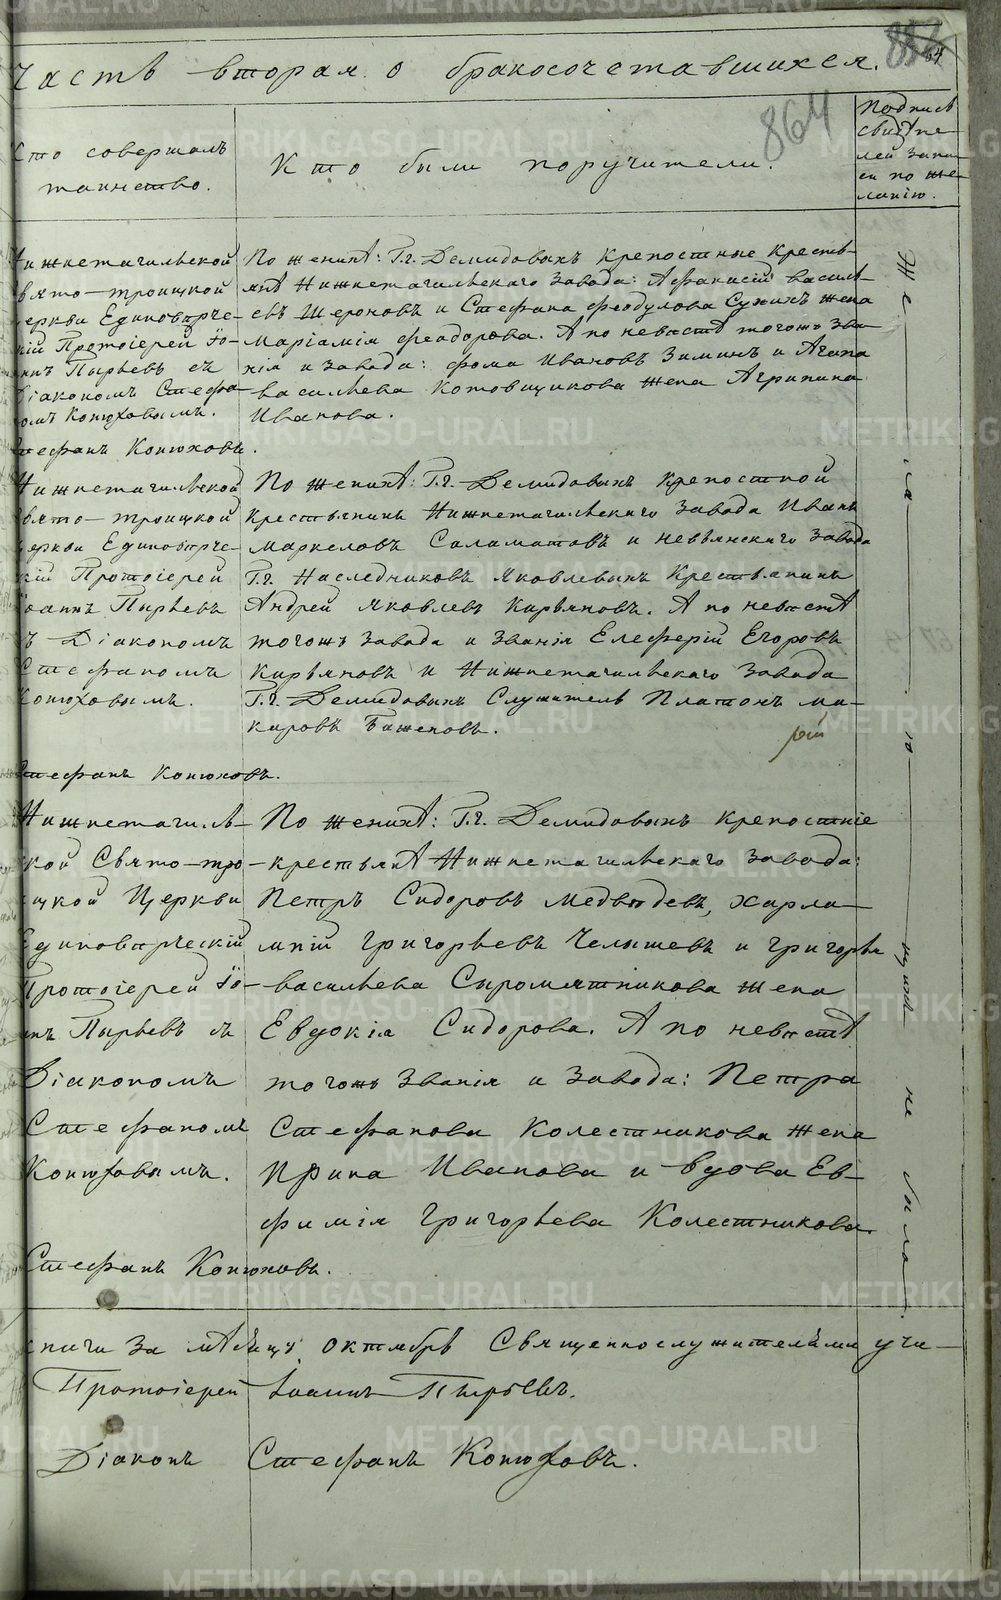 Часть вторая о бракосочетавшихся.
864
Кто совершалъ
таинство.
Кто были поручители.
Подпись
свидѣте-
лей запи-
си по же-
ланію.
Нижнетагильской
Свято-троицкой
церкви Единовѣрче-
скій Протоіерей Іо-
аннъ Пырьевъ съ
Діакономъ Стефа-
номъ Конюховымъ.
Стефанъ Конюховъ.
По женихѣ: Г.г. Демидовыхъ крепостные Кресть-
янѣ Нижнетагильскаго Завода: Афанасій василь-
евъ Шероновъ и Стефана феодулова Сухихъ жена
Маріамія феодорова. А по невѣстѣ тогожъ зва-
нія и завода: фома Ивановъ Зиминъ и Агапа
васильева Котовщикова жена Агрипина
Иванова.
Нижнетагильской
Свято-троицкой
церкви Единовѣрче-
скій Протоіерей
Іоаннъ Пырьевъ
съ Діакономъ
Стефаномъ
Конюховымъ.
Стефанъ Конюховъ.
По женихѣ: Г.г. Демидовыхъ крепостной
крестьянинъ Нижнетагильскаго завода Иванъ
маркеловъ Саламатовъ и невьянскаго завода
Г.г. Наследниковъ Яковлевыхъ Крестьянинъ
Андрей Яковлевъ Кирьяновъ. А по невѣстѣ
тогожъ завода и званія Елеферій Егоровъ
Кирьяновъ и Нижнетагильскаго завода
Г.г. Демидовыхъ Служитель Платонъ ма-
каровъ Баженовъ.
Нижнетагиль-
ской Свято-тро-
ицкой Церкви
Единовѣрческій
Протоіерей Іо-
аннъ Пырьевъ съ
Діакономъ
Стефаномъ
Конюховымъ.
Стефанъ Конюховъ.
По женихѣ: Г.г. Демидовыхъ крепостніе
крестьянѣ Нижнетагильскаго завода:
Петръ Сидоровъ медвѣдевъ, харла-
мпій Григорьевъ Челышевъ и григорья
васильева Сыромятникова жена
Евдокія Сидорова. А по невѣстѣ
тогожъ званія и завода: Петра
Стефанова Колесникова жена
Ирина Иванова и вдова Ев-
фимія Григорьева Колестникова.
Же ла ю щихъ не было.
книги за мѣсяцъ октябрь Священнослужителями учи-
Протоіерей Іоаннъ Пырьевъ.
Діаконъ Стефанъ Конюховъ.
METRIKI.GASO-URAL.RU